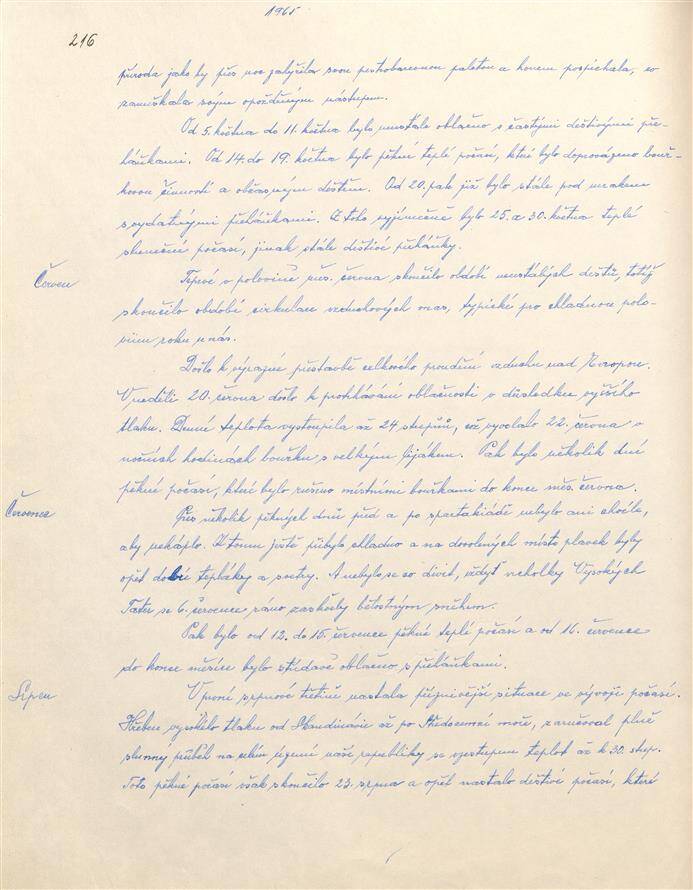 1965
216
příroda jako by přes noc zalíčila svou pestrobarevnou paletou a honem pospíchala, co
zameškala svým opožděným nástupem.
Od 5. května do 11. května bylo neustále oblačno s častými dešťovými pře-
háňkami. Od 14. do 19. května bylo pěkné teplé počasí, které bylo doprovázeno bouř-
kovou činností a občasným deštěm. Od 20. pak již bylo stále pod mrakem
s vydatnými přeháňkami. Z toho vyjímečně bylo 25. a 30. května teplé
slunečné počasí, jinak stále deštivé přeháňky.
Červen
Teprve v polovině měs. června skončilo období neustálých dešťů, totiž
skončilo období cirkulace vzduchových mas, typické pro chladnou polo-
vinu roku u nás.
Došlo k výrazné přestavbě celkového proudění vzduchu nad Evropou.
V neděli 20. června došlo k protrhávání oblačnosti v důsledku vyššího
tlaku. Denní teplota vystoupila až 24 stupňů, což vyvolalo 22. června v
nočních hodinách bouřku s velkým lijákem. Pak bylo několik dní
pěkné počasí, které bylo rušeno místními bouřkami do konce měs. června.
Červenec
Přes několik pěkných dnů před a po spartakiádě nebylo ani chvíle,
aby nekáplo. K tomu ještě přibylo chladno a na dovolených místo plavek byly
opět dobré tepláky a svetry. A nebylo se co divit, vždyť vrcholky Vysokých
Tater se 6. července ráno zaskvěly bělostným sněhem.
Pak bylo od 12. do 15. července pěkné teplé počasí a od 16. července
do konce měsíce bylo střídavě oblačno s přeháňkami.
Srpen
V první srpnové třetině nastala příznivější situace ve vývoji počasí.
Hřeben vysokého tlaku od Skandinávie až po Středozemní moře, zaručoval plně
slunný průběh na celém území naší republiky se vzestupem teplot až k 30. stup.
Toto pěkné počasí však skončilo 23. srpna a opět nastalo deštivé počasí, které